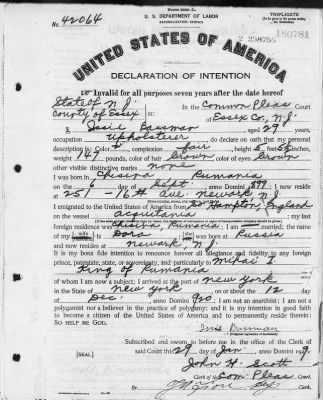 No. 42064
U. S. DEPARTMENT OF LABOR
NATURALIZATION SERVICE
TRIPLICATE
2 258755
180781
UNITED STATES OF AMERICA
DECLARATION OF INTENTION
Invalid for all purposes seven years after the date hereof
State of N. J.
County of Essex ss:
In the Common Pleas Court
of Essex Co., N. J.
I, aged 29 years,
occupation Upholsterer do declare on oath that my personal
description is: Color W, complexion fair, height 5 feet inches,
weight 147 pounds, color of hair brown, color of eyes brown
other visible distinctive marks none
I was born in Rumania
on the 6 day of Sept., anno Domini; I now reside
at 251 - 16th Ave. Newark N. J.
I emigrated to the United States of America from So. Hampton, England
on the vessel Aquitania; my last
foreign residence was Rumania; I am married; the name of my
wife is Dora; she was born at Russia
and now resides at Newark, N. J.
It is my bona fide intention to renounce forever all allegiance and fidelity to any foreign
prince, potentate, state, or sovereignty, and particularly to
King of Rumania
of whom I am now a subject; I arrived at the port of New York
in the State of New York, on or about the 12
day of Dec., anno Domini 920; I am not an anarchist; I am not a
polygamist nor a believer in the practice of polygamy; and it is my intention in good faith
to become a citizen of the United States of America and to permanently reside therein:
SO HELP ME GOD.
Subscribed and sworn to before me in the office of the Clerk of
said Court this 29 day of Jan., anno Domini
[SEAL]
John H. Scott
Clerk of the Com. Pleas Court.
Clerk.